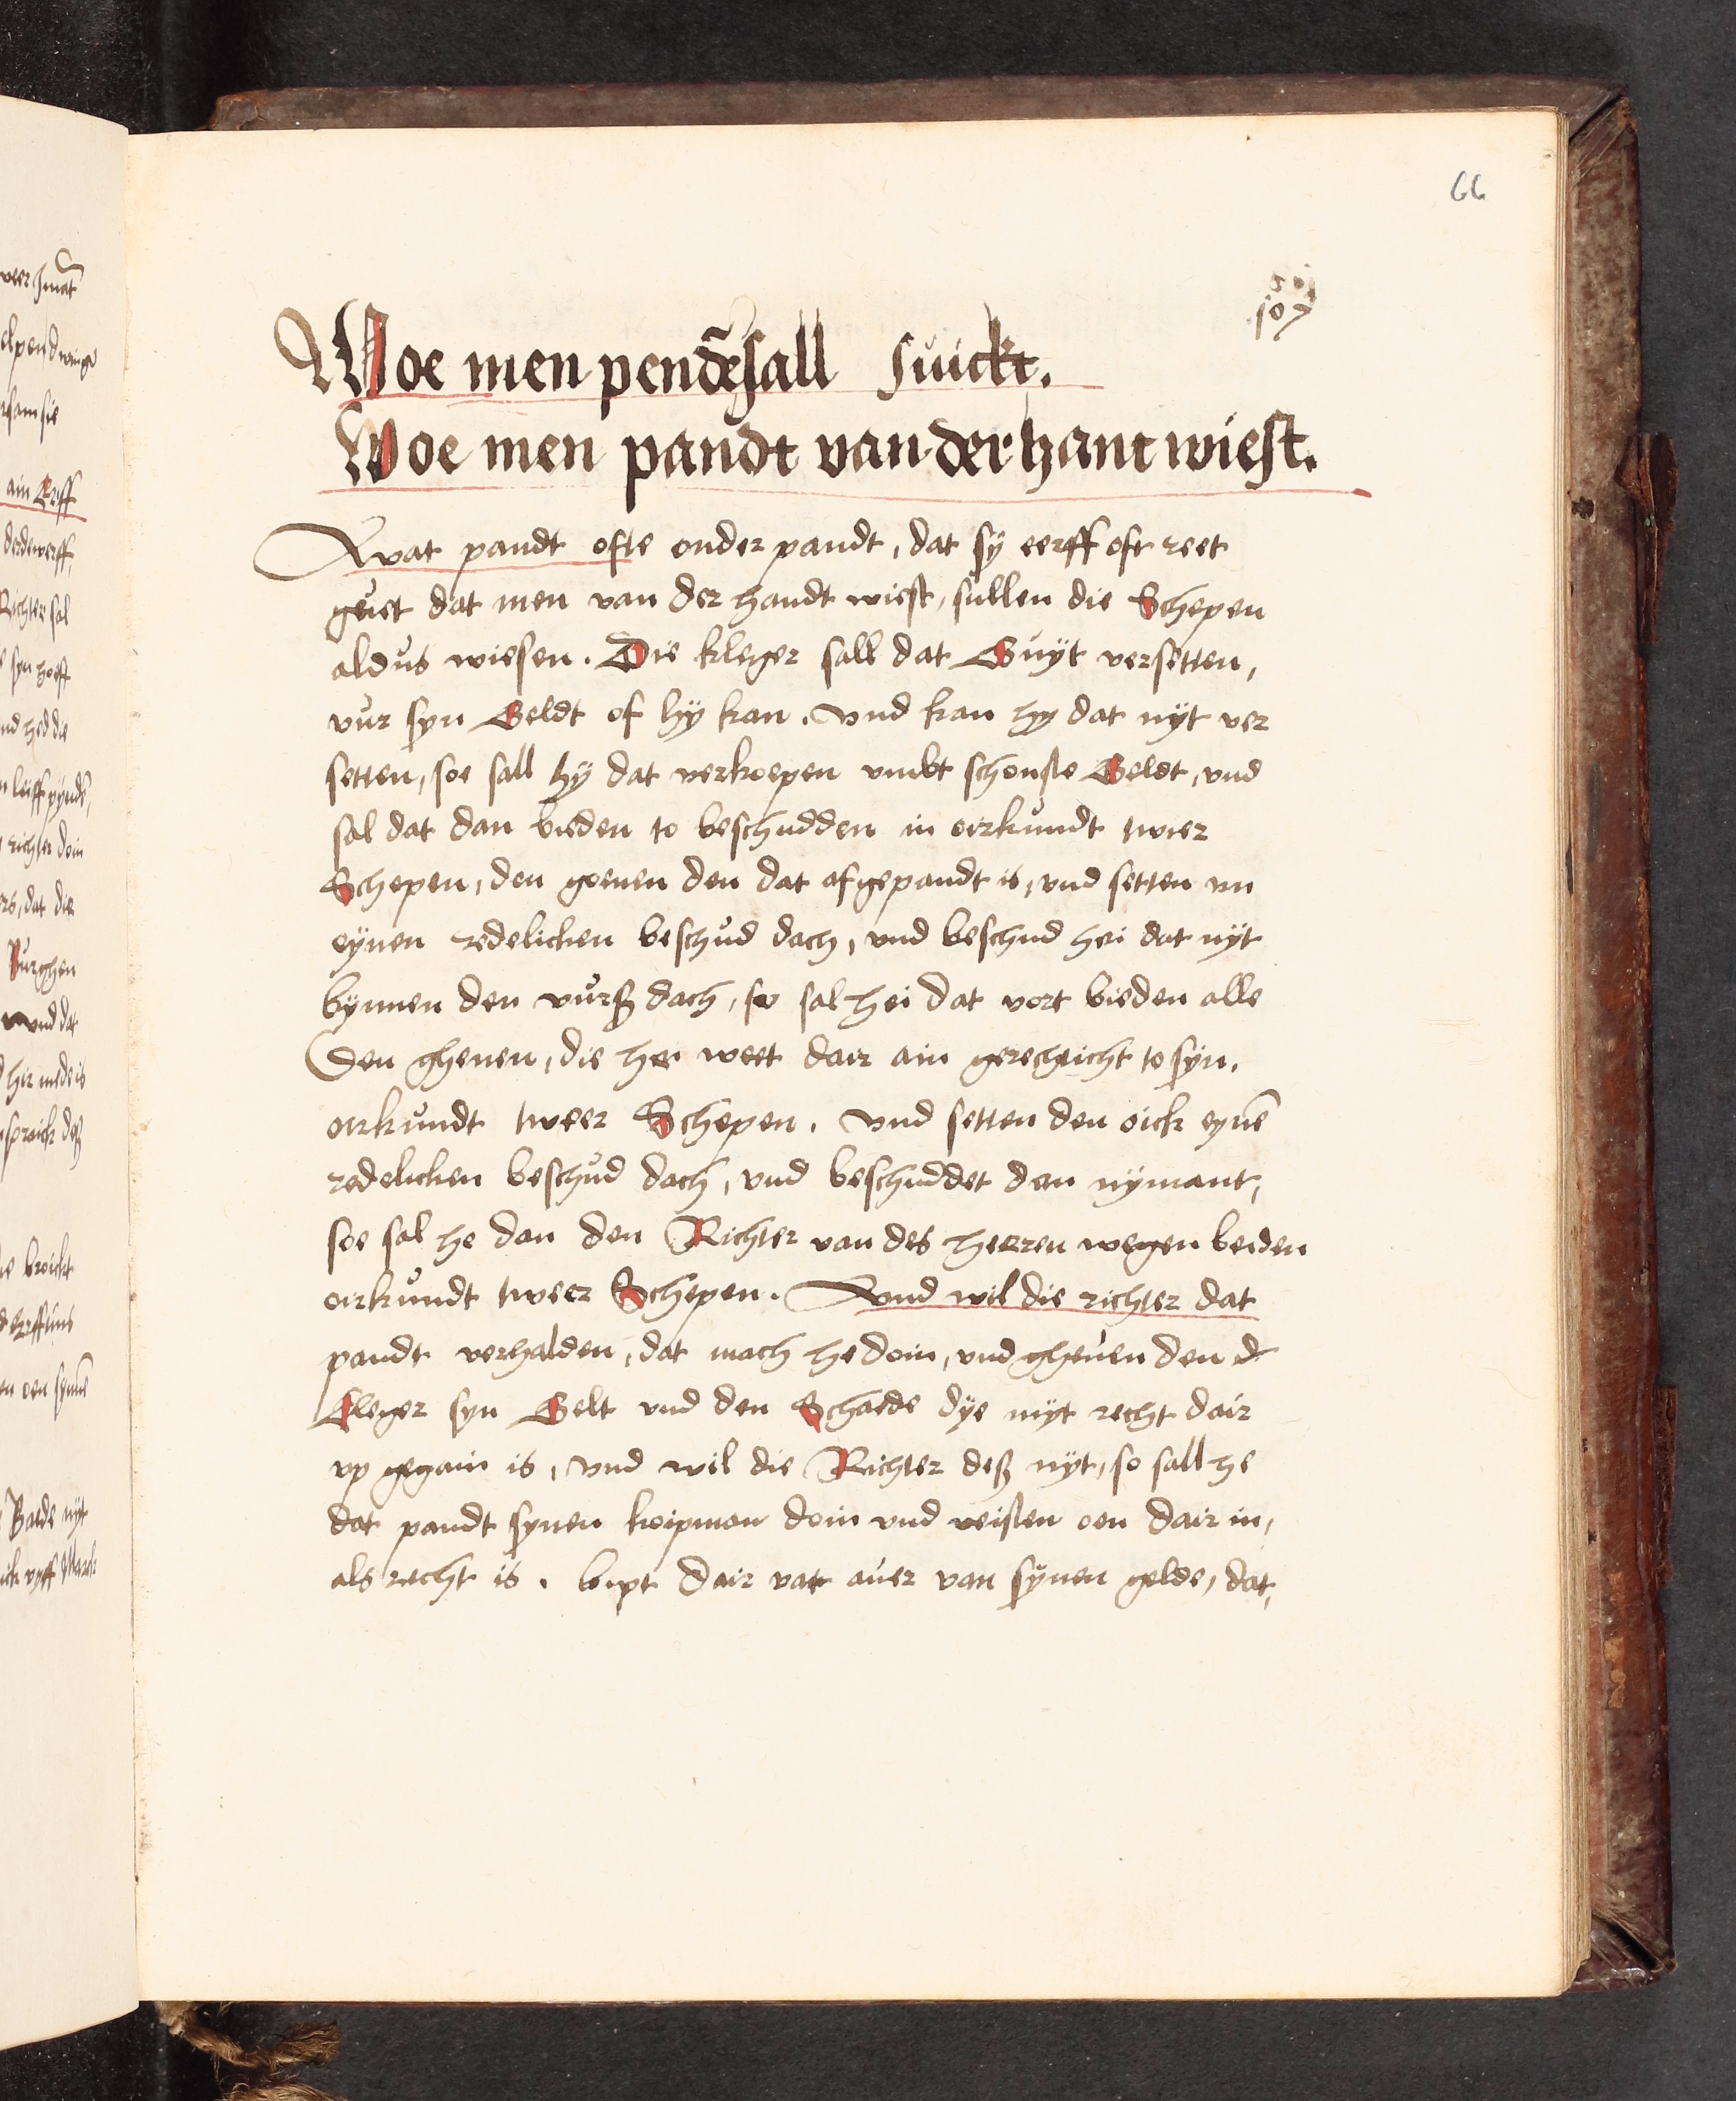 66
107
Woe men penden̄ sall suickt.
Woe men pandt van der hant wiest.
Wat pandt ofte onder pandt, dat sÿ eerff oft reet
guet dat men van der handt wiest, sullen die Schepen
aldus wiesen. Die kleger sall dat Guÿt versetten,
vur syn Geldt of hÿ kan. Vnd kan hy dat nÿt ver
setten, soe sall hÿ dat verkoepen vmbt schonste Geldt, vnd
sal dat dan bieden to beschudden in oirkundt twier
Schepen, den goenen den dat afgepandt is, vnd setten vm
eÿnen redelicken beschud dach, vnd beschud hei dat nÿt
bÿnnen den vurß dach, so sal hei dat vort bieden alle
den ghenen, die he weet dair ain gerechticht to sÿn.
oirkundt tweer Schepen. Vnd setten den oick eynē
redelicken beschud dach, vnd beschuddet dan nÿmant,
soe sal he dan den Richter van des herren wegen beiden
oirkundt tweer Schepen. Vnd wil die richter dat
pandt verhalden, dat mach he doin, vnd gheuen den
Cleger syn Gelt vnd den Schaede dÿe mÿt recht dair
vp gegain is, Vnd wil die Richter deß nÿt, so sall he
dat pandt sÿnen koipman doin vnd veisten oen dair in,
als recht is. bipt dair vat auer van sÿnen gelde, dat,
veer Jmāt
ain Erff
derdewerff,
Richter sal
richter doin
dat die
Burghen
vnd dat
hir mede is